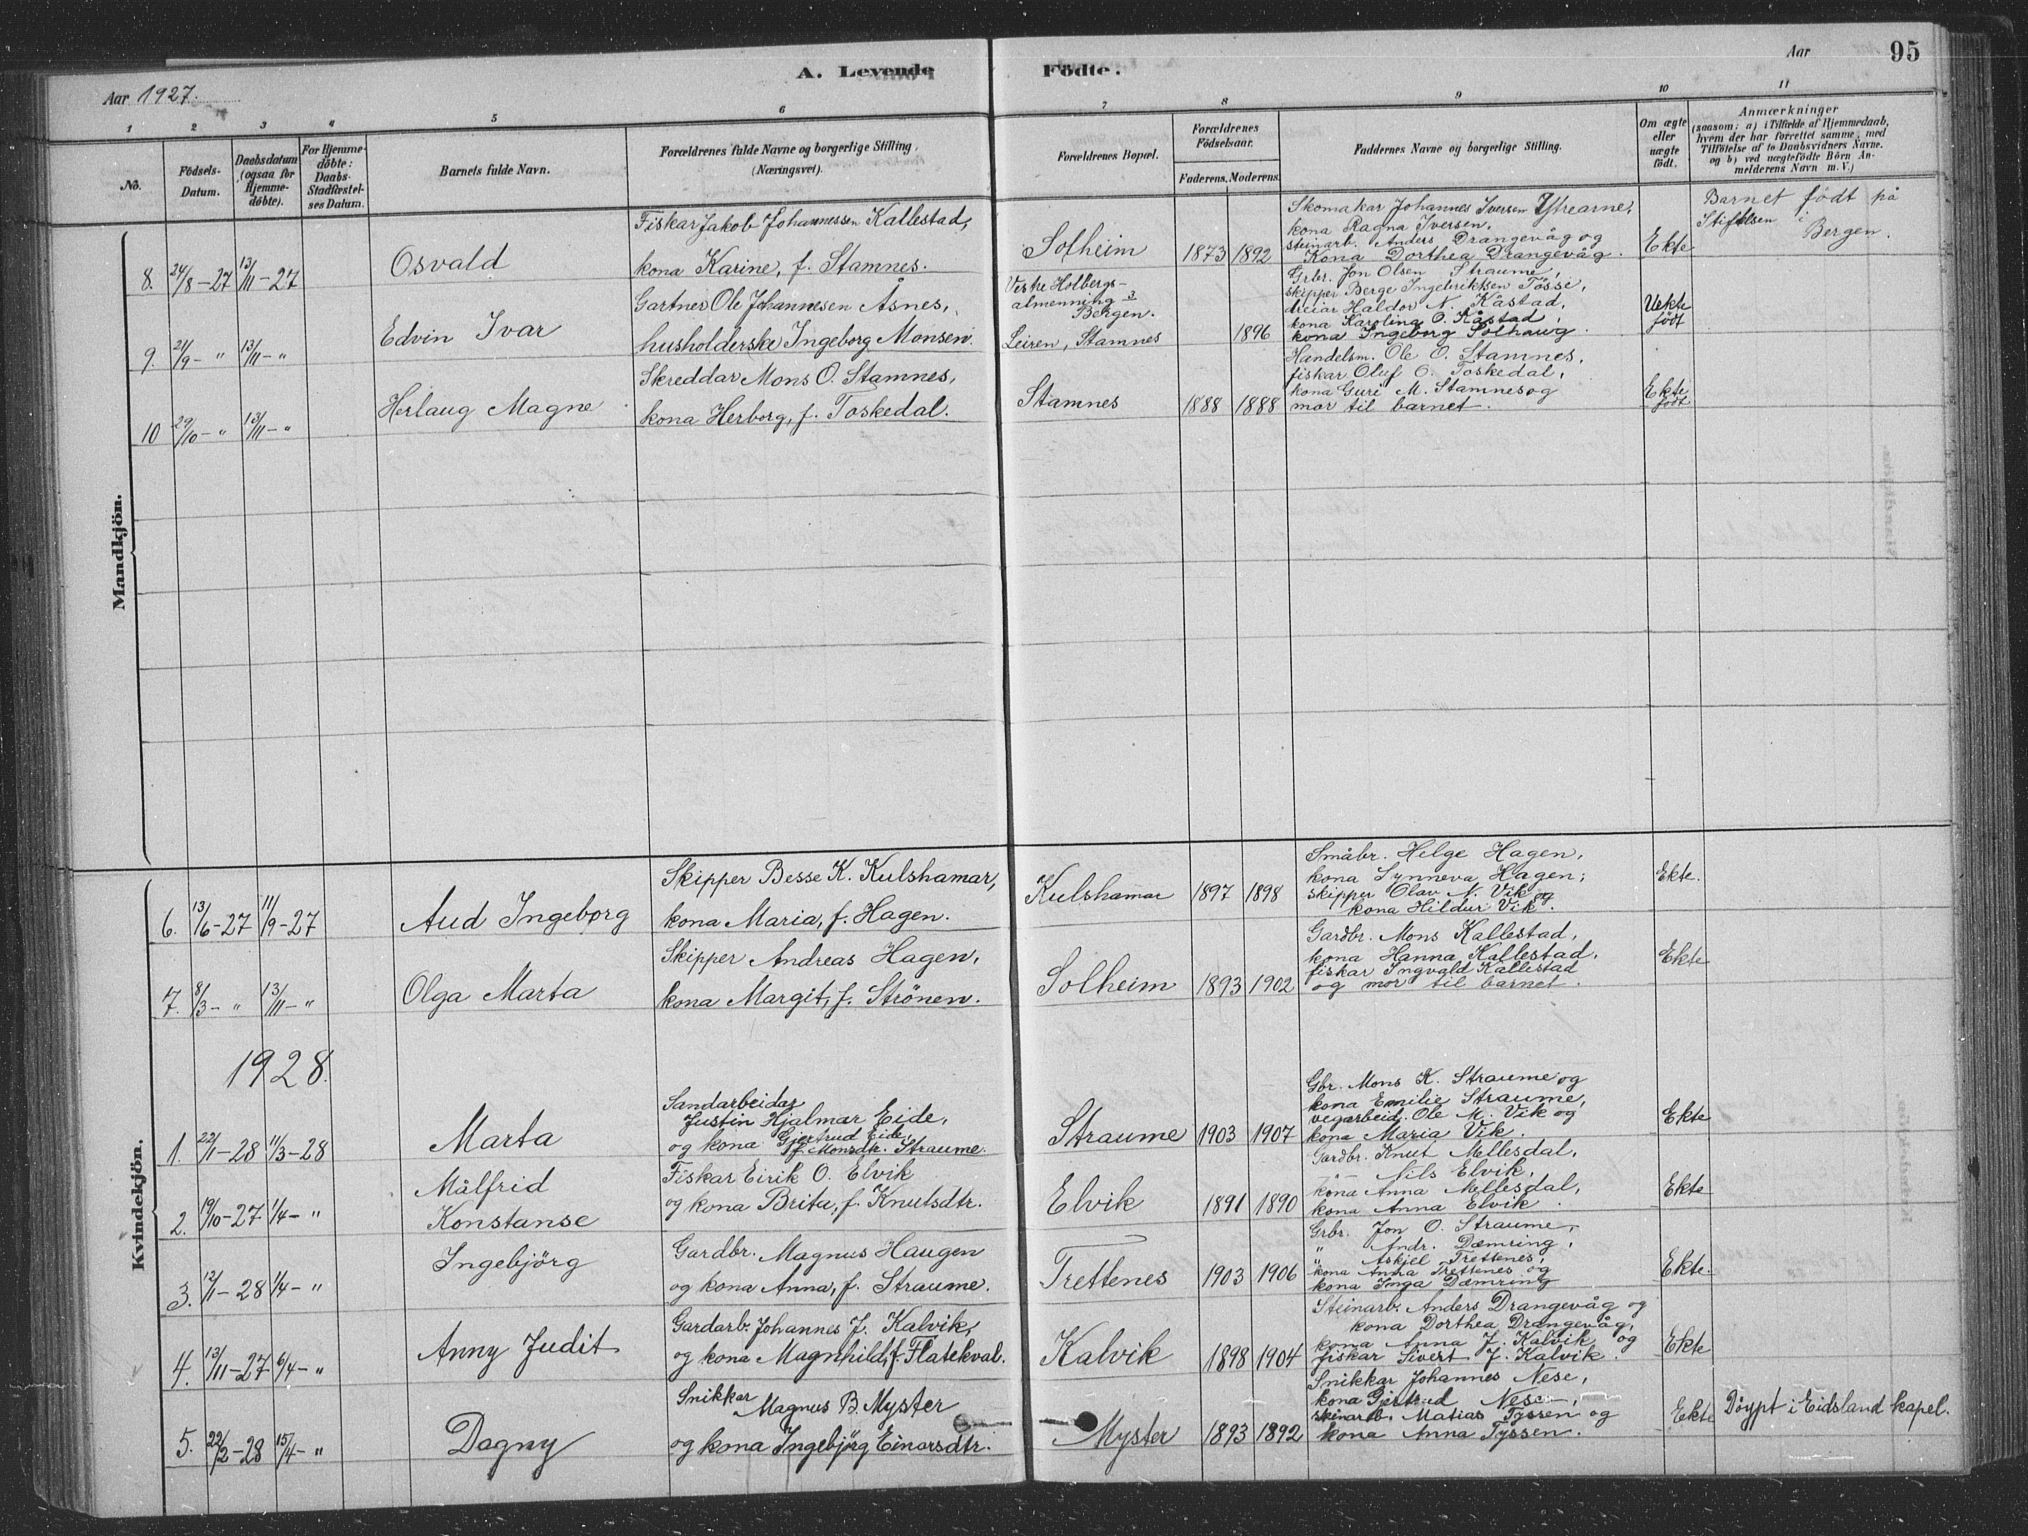 A. Levende Födte.
Aar 1927.
Aar 95
1 2 3 4 5 6 7 8 9 10 11
No.
Födsels-Datum.
Daabsdatum (ogsaa for Hjemme-döbte).
For Hjemme-döbte: Daabs-Stadfæstel-ses Datum.
Barnets fulde Navn.
Forældrenes fulde Navne og borgerlige Stilling. (Næringsvei).
Forældrenes Bopæl.
Forældrenes Födselsaar.
Faderens. Moderens.
Faddernes Navne og borgerlige Stilling.
Om ægte eller uægte født.
Anmærkninger
(saasom: a) i Tilfælde af Hjemmedaab, hvem der har forrettet samme, med Tilföielse af to Daabsvidners Navne. og b) ved uægtefödte Börn An-melderens Navn m. V.)
Mandkjön.
8. 24/8-27 13/11-27
Osvald
Fiskar Jakob Johannessen Kallestad,
kona Karine, f. Stamnes.
Solheim
1873 1892
Skomakar Johannes Iversen Ystrearne,
kona Ragna Iversen,
steinarb. Anders Drangevåg og
Kona Dorthea Drangevåg.
Ekte
Barnet født på
Stiftelsen i
Bergen.
9. 21/9-" 13/11-"
Edvin Ivar
Gartner Ole Johannesen Åsnes,
husholderske Ingeborg Monsen.
Vestre Holbergs-
almenning 3
Bergen.
Leiren, Stamnes
1896
Grbr. Jon Olsen Straume,
skipper Berge Ingebriktsen Tösse,
dreiar Haldor N. Kåstad,
kona Karolina O. Kåstad,
kona Ingeborg Solhaug.
Uekte
født
10 29/10-" 13/11-"
Herlaug Magne
Skreddar Mons O. Stamnes,
kona Herborg, f. Toskedal.
Stamnes
1888 1888
Handelsm. Ole O. Stamnes,
fiskar Oluf O. Toskedal,
kona Guri M. Stamnes og
mor til barnet.
Ekte
født
Kvindekjön.
6. 13/6-27 11/9-27
Aud Ingeborg
Skipper Besse K. Kulshamar,
kona Maria, f. Hagen.
Kulshamar
1897 1898
Småbr. Helge Hagen,
kona Synneva Hagen;
skipper Olav N. Vik og
kona Hildur Vik.
Ekte.
7. 8/3-" 13/11-"
Olga Marta
Skipper Andreas Hagen,
kona Margit, f. Strönen.
Solheim
1893 1902
Gardbr. Mons Kallestad,
kona Hanna Kallestad,
fiskar Ingvald Kallestad
og mor til barnet.
Ekte
1928.
1. 22/1-28 11/3-28
Marta
Sandarbeidar
Justin Hjalmar Eide,
og kona Gjertrud Eide,
f. Monsdtr. Straume.
Straume
1903 1907
Gbr. Mons K. Straume og
kona Emilie Straume,
vegarbeid. Ole M. Vik og
kona Maria Vik.
Ekte
2. 19/10-27 1/4-"
Målfrid
Konstanse
Fiskar Eirik O. Elvik
og kona Brita, f. Knutsdtr.
Elvik
1891 1890
Gardbr. Knut Mellesdal,
— Nils Elvik,
kona Anna Mellesdal,
kona Anna Elvik.
Ekte
3. 12/1-28 1/4-"
Ingebjörg
Gardbr. Magnus Haugen
og kona Anna, f. Straume.
Trettenes
1903 1906
Grbr. Jon O. Straume,
" Andr. Dæmring,
" Askjel Trettenes,
kona Anna Trettenes og
kona Inga Dæmring
Ekte.
4. 13/11-27 6/4-"
Anny Judit
Gardarb. Johannes J. Kalvik,
og kona Magnhild, f. Flatekval.
Kalvik
1898 1904
Steinarb. Anders Drangevåg og
kona Dorthea Drangevåg,
kona Anna J. Kalvik og
fiskar Sivert J. Kalvik.
Ekte
5. 22/2-28 15/4-"
Dagny
Snikkar
Magnus B. Myster
og kona Ingebjörg Einarsdtr.
Myster
1893 1892
Snikkar Johannes Nese,
kona Gjertrud Nese,
steinarb. Matias Tyssen og
kona Anna Tyssen.
Ekte
Döypt i Eidsland kapel.